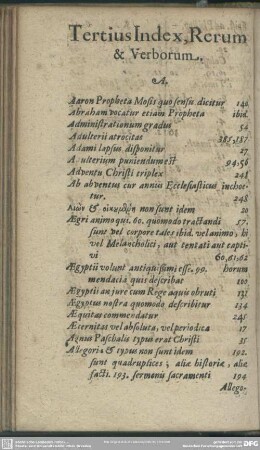 Tertius Index, Rerum
& Verborum.
A.
Aaron Propheta Mosis quo sensu dicitur 140
Abraham vocatur etiam Propheta ibid.
Administrationum gradus 54
Adulterii atrocitas 385,387
Adami lapsus disponitur 27
Adulterium puniendum est 94,56
Adventu Christi triplex 248
Ab adventus cur annus Ecclesiasticus inchoe-
tur. 248
non sunt idem 20
Ægri animo qui. 60. quomodo tractandi 57.
sunt vel corpore tales ibid. vel animo, hi
vel Melancholici, aut tentati aut capti-
vi 60,61,62
Ægyptii volunt antiquissimi esse. 99. horum
mendacia quis describat 100
Ægyptii an jure cum Rege aquis obruti 131
Ægyptus nostra quomodo describitur 134
Æquitas commendatur 245
Æternitas vel absoluta, vel periodica 17
Agnus Paschalis typus erat Christi 35
Allegoria & typus non sunt idem 192.
sunt quadruplices, aliæ historiæ, aliæ
facti. 193. sermonis sacramenti 194
Allego-